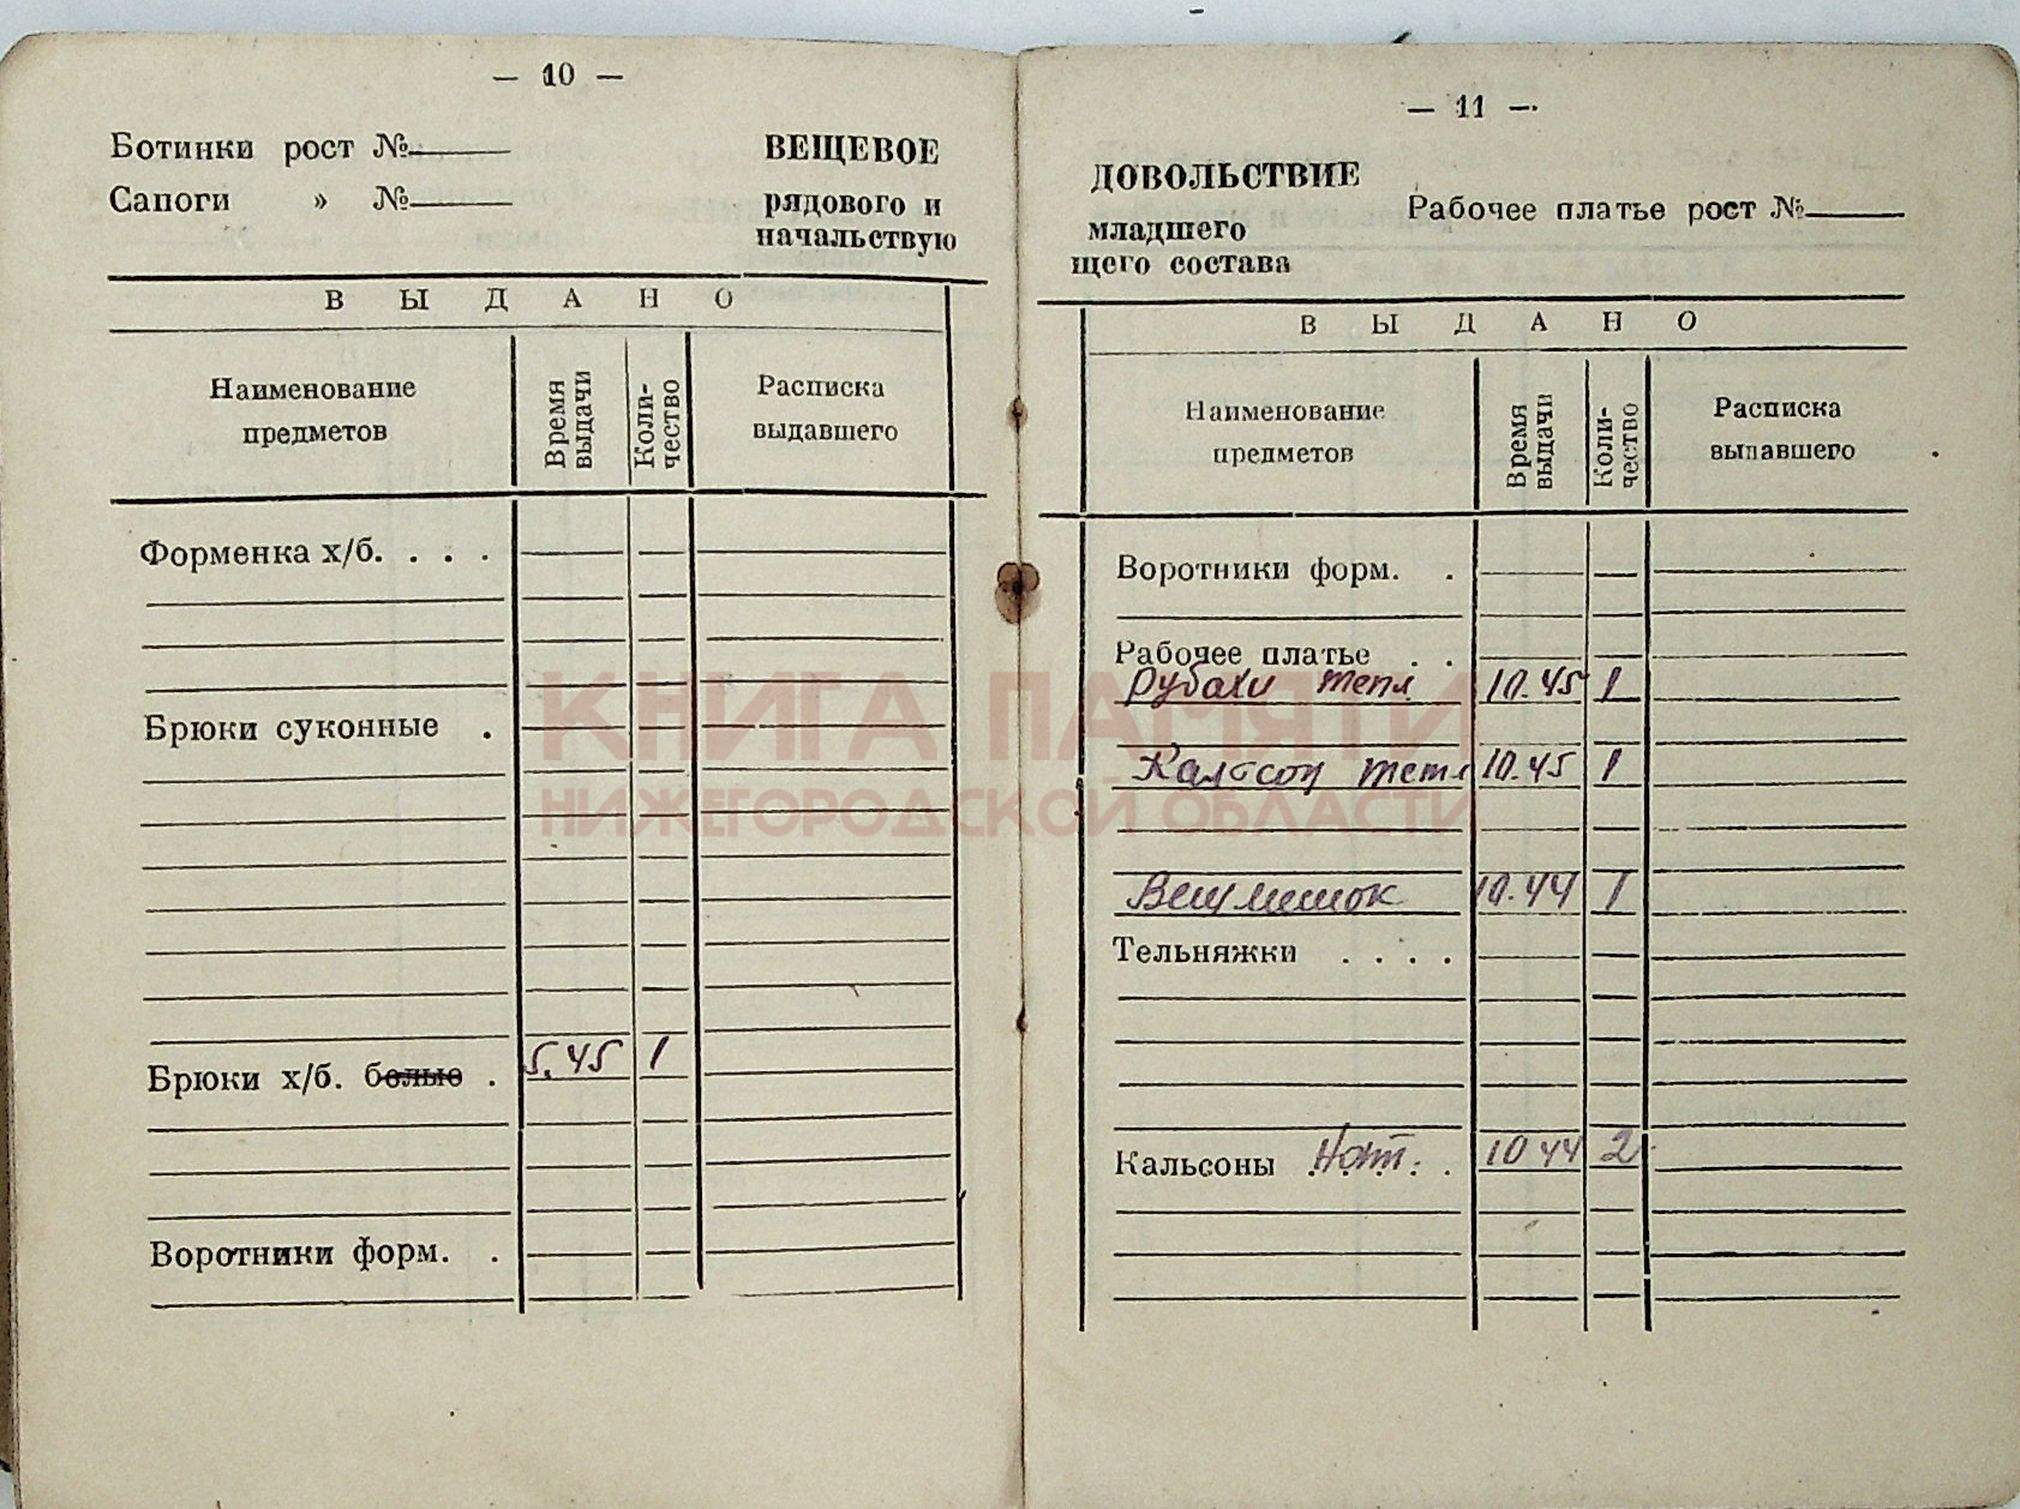 — 10 —
Ботинки рост №
ВЕЩЕВОЕ
Сапоги » №
рядового и
начальствую
ВЫДАНО
Наименование
предметов
Время
выдачи
Коли-
чество
Расписка
выдавшего
Форменка х/б. . . .
Брюки суконные .
Брюки х/б. белые . 5.45 1
Воротники форм. .
— 11 —
ДОВОЛЬСТВИЕ
Рабочее платье рост №
младшего
щего состава
ВЫДАНО
Наименование
предметов
Время
выдачи
Коли-
чество
Расписка
выдавшего
Воротники форм. .
Рабочее платье . .
Рубахи тепл 10.45 1
Калсон тепл 10.45 1
Вещмешок 10.44 1
Тельняжки . . . .
Кальсоны Нат. . 10 44 2
КНИГА ПАМЯТИ
НИЖЕГОРОДСКОЙ ОБЛАСТИ